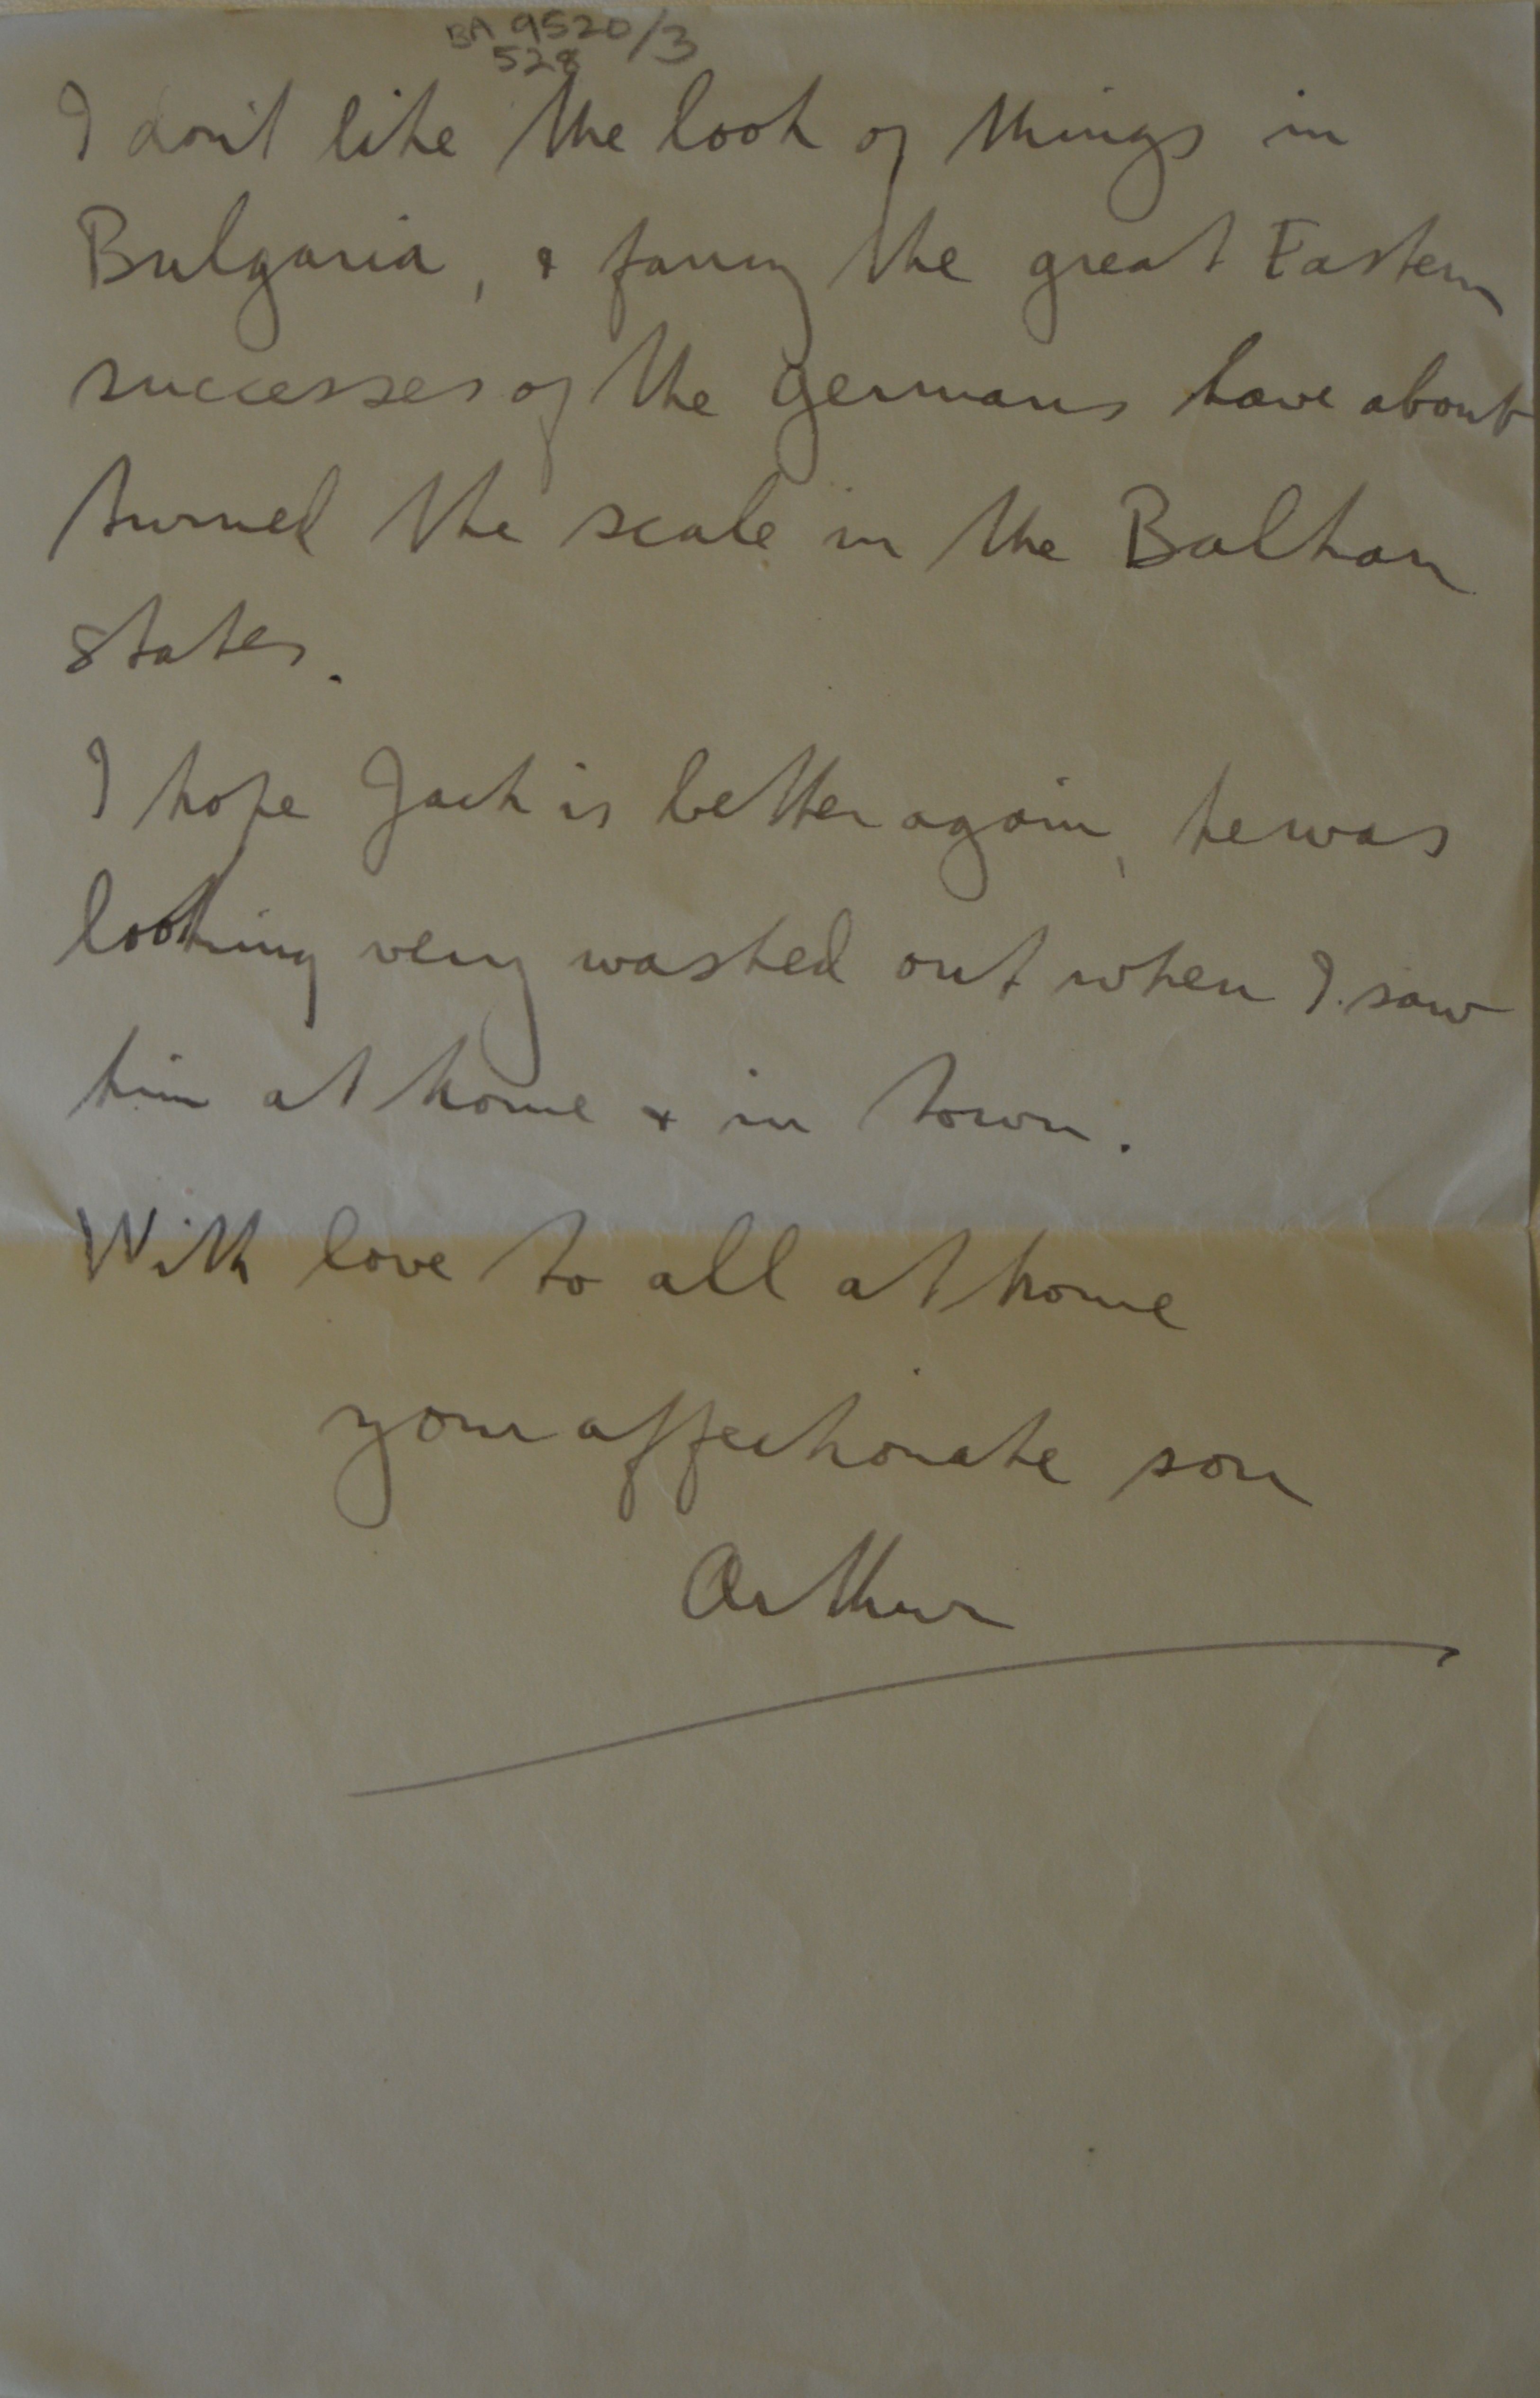 BA 9520/3
528
I don't like the look of things in
Bulgaria, & fancy the great Eastern
successes of the Germans have about
turned the scale in the Balkan
States.
I hope Jack is better again, he was
looking very washed out when I saw
him at home & in town.
With love to all at home
your affectionate son
Arthur